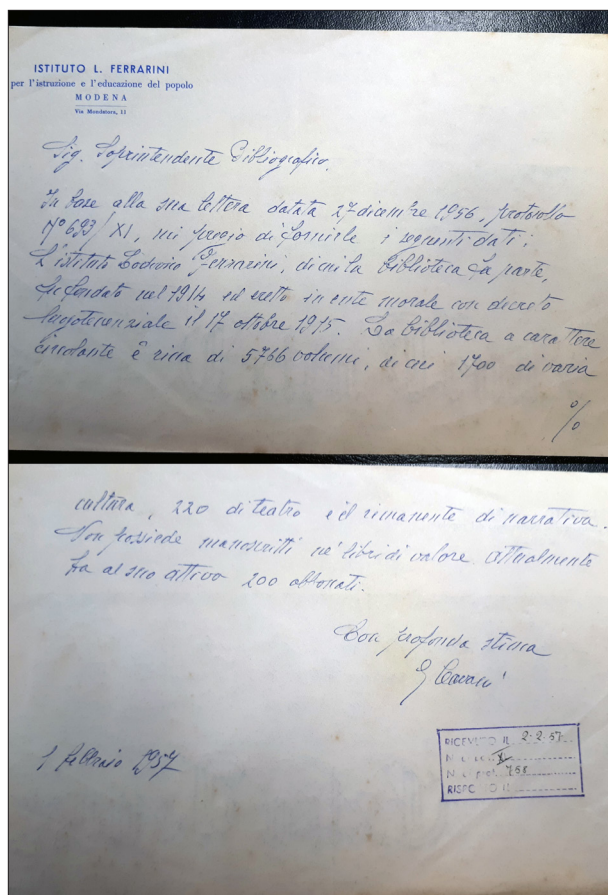 ISTITUTO L. FERRARINI
per l'istruzione e l'educazione del popolo
MODENA
Via Mondatora, 11
Sig. Soprintendente Bibliografico,
In base alla sua lettera datata 27 dicembre 1956, protocollo
N° 693/XI, mi pregio di fornirle i seguenti dati;
L'istituto Lodovico Ferrarini, di cui la biblioteca fa parte,
fu fondato nel 1914 ed eretto in ente morale con decreto
luogotenenziale il 17 ottobre 1915. La biblioteca a carattere
circolante è ricca di 5766 volumi, di cui 1700 di varia
%
cultura, 220 di teatro e il rimanente di narrativa.
Non possiede manoscritti né libri di valore attualmente
ha al suo attivo 200 abbonati.
Con profonda stima
1 febbraio 1957
RICEVUTO IL 2-2-57
XI
N. di prot. 758
RISPOSTO IL